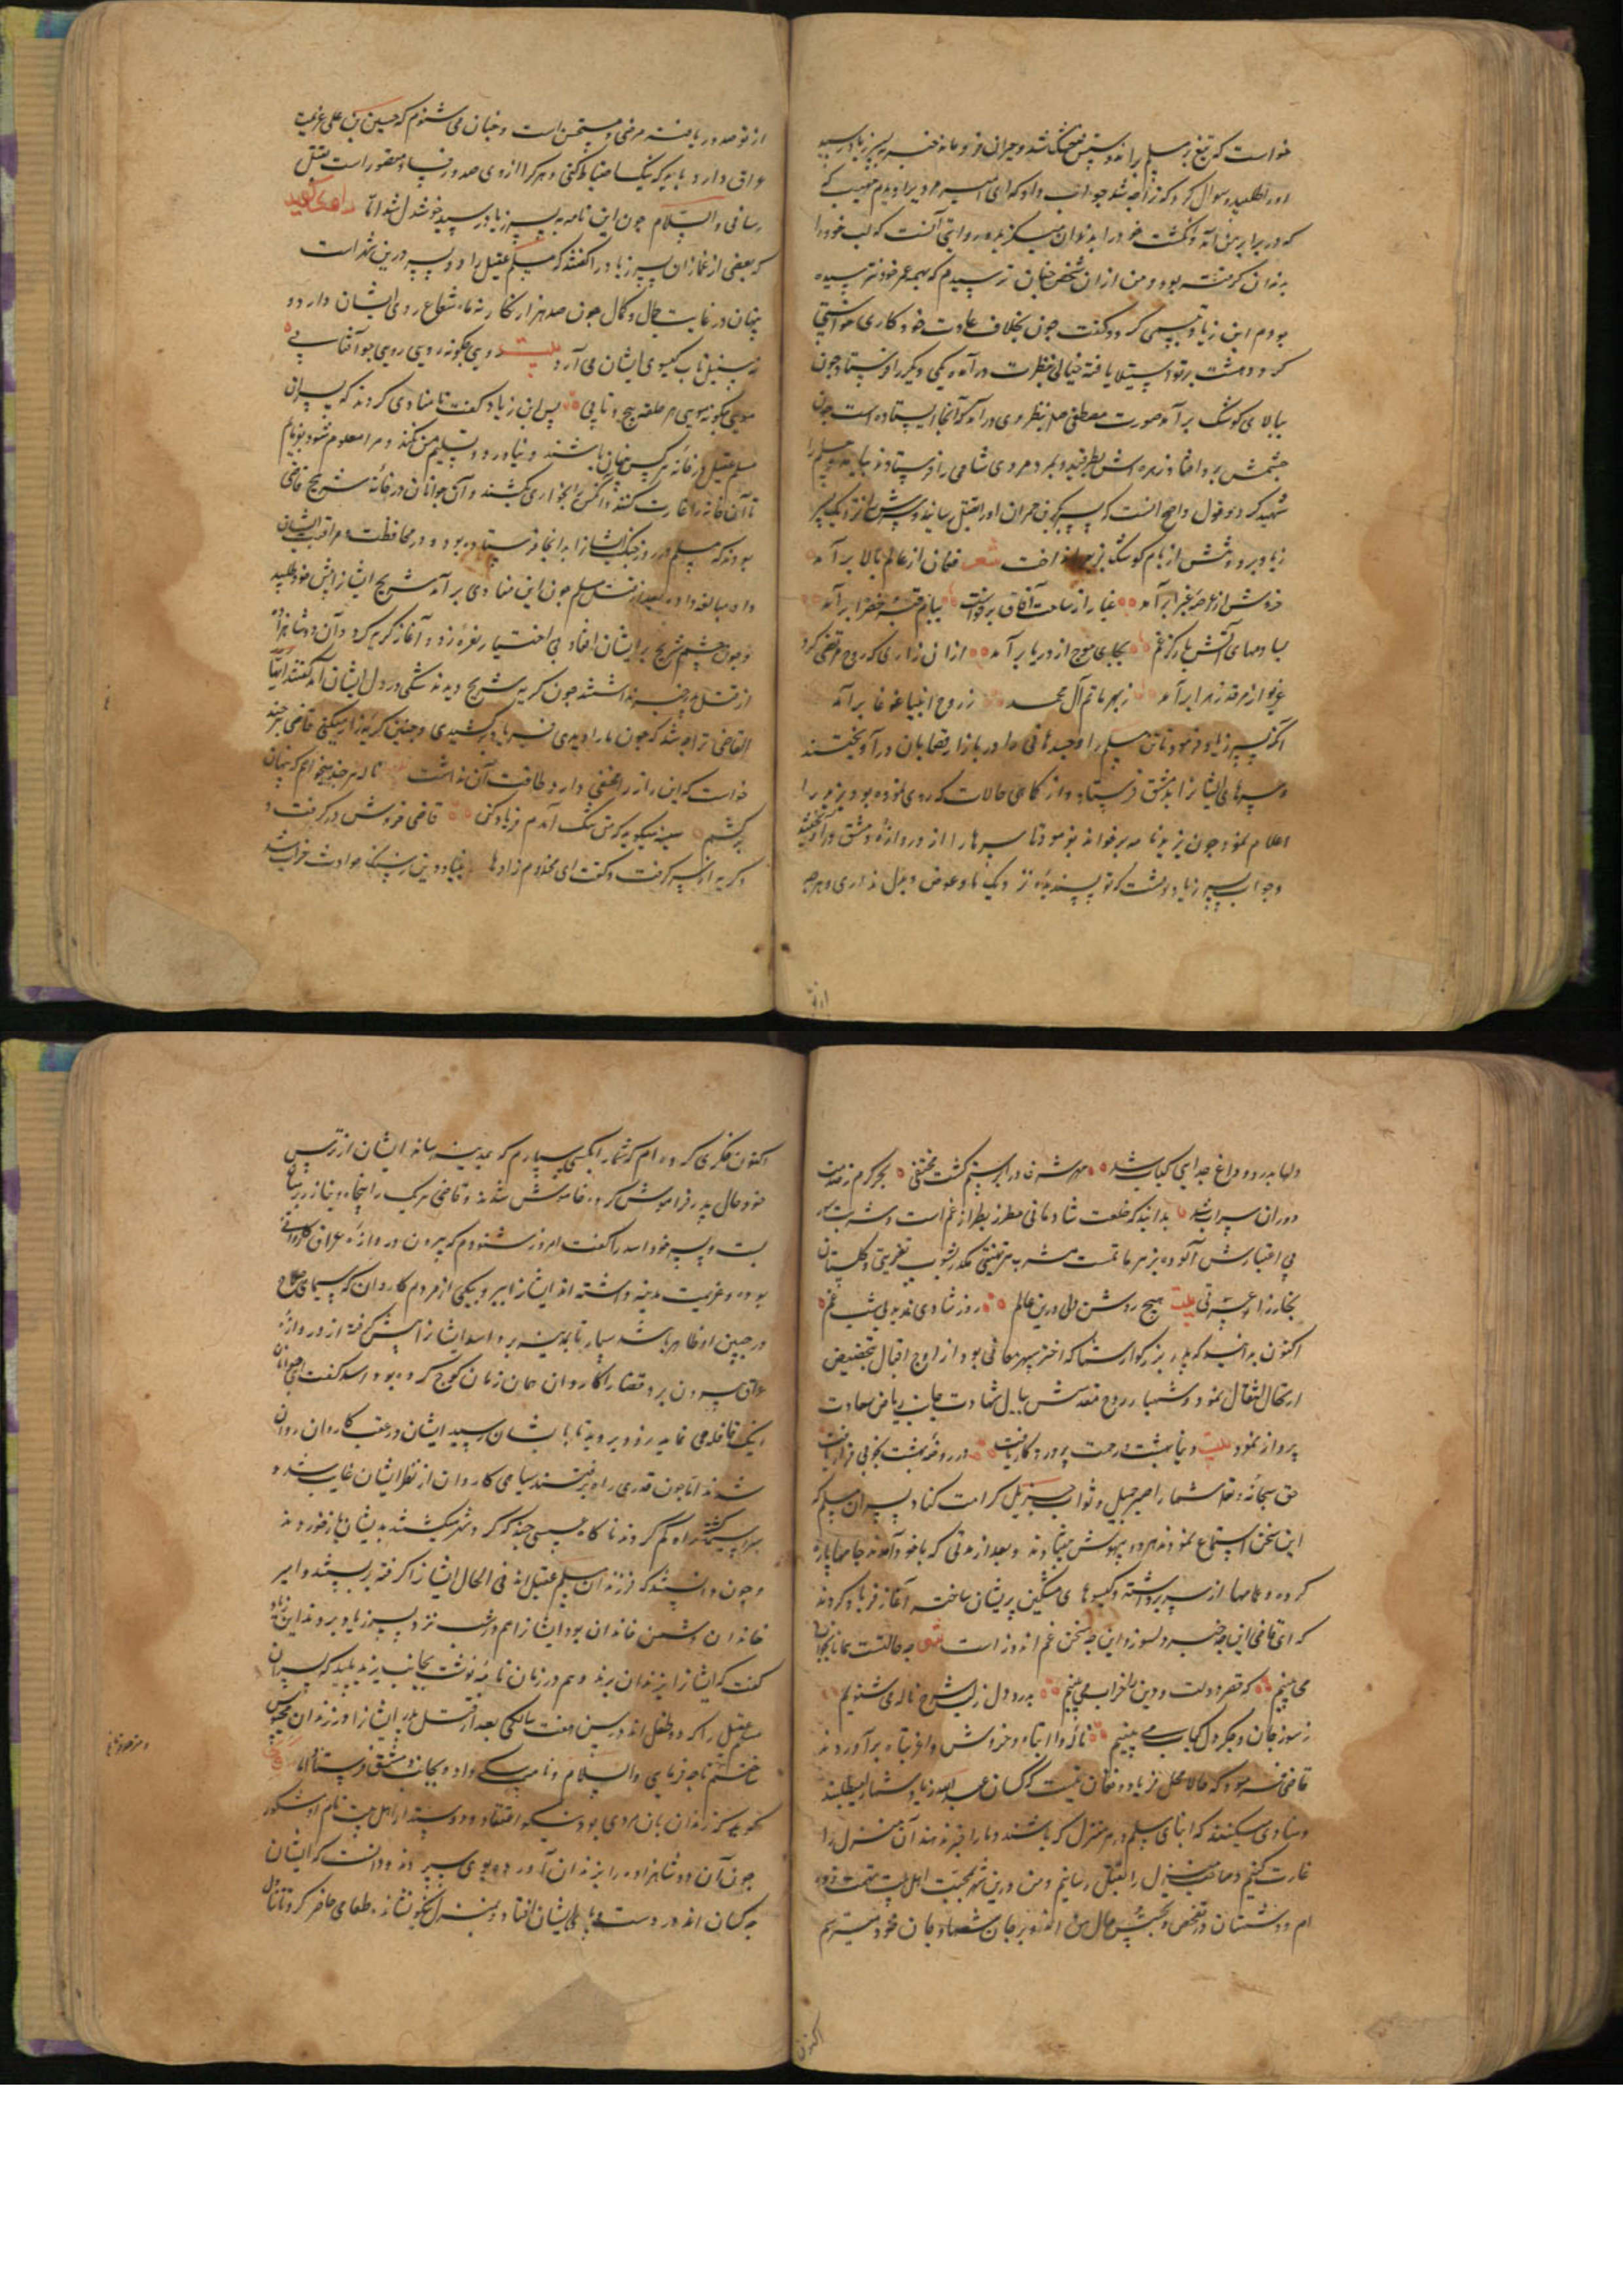 خواست که تیغ بر مسلم براند دستش خشک شد و حیران فرو مانده خبر به پسر زیاد رسید
او را طلبید و سوال کرد که ترا چه شد جواب داد که ای امیر مردی را دیدم مهیب که
که در برابر من آمد و انگشت خود را بدندان میگزید و روایتی آنست که لب خود را
بدندان گرفته بود و من از ان شخص چنان ترسیدم که بهمه عمر خود نترسیده
بودم ابن زیاد تبسمی کرد و گفت چون بخلاف عادت خود کاری خواستی
کرد دهشت بر تو استیلا یافته خیالی بنظرت در آمده یکی دیگر را فرستاد چون
ببالای کوشک بر آمد صورت مصطفی صلعم بنظر وی در آمد که آنجا ایستاده است چون
چشمش برو افتاد زهره اش بطرقید و بمرد مردی شامی را فرستادند بیامد و مسلم را
شهید کرد و قول واضح آنست که پسر بکر بن حمران او را بقتل رسانید و سرش را نزدیک پسر
زیاد برد و تنش از بام کوشک بزیر انداخت شعر فغان از عالم بالا بر آمد
خروش از عرصه غبرا بر آمد غبار از ساحت آفاق برخاست ببام قبه خضرا بر آمد
بسا دمهای آتش بار کز غم بجای موج از دریا بر آمد از ان زاری که روح مرتضی کرد
غریو از مرقد زهرا بر آمد ز بهر ماتم آل محمد ز روح انبیا غوغا بر آمد
آنکه پسر زیاد فرمود تا تن مسلم را و جسد هانی را در بازار قصابان در آویختند
و سرهای ایشانرا بدمشق فرستاد و از تمامی حالات که روی نموده بود یزید را
اعلام نمود چون یزید نامه بر خواند بفرمود تا سرها را از دروازه دمشق در آویختند
و جواب پسر زیاد نوشت که تو پسندیده تر نزدیک ما و عوض و بدل نداری و هر چه
از تو صدور یافته مرضی و مستحسن است و چنان می شنوم که حسین بن علی عزیمت
عراق دارد باید که نیک احتیاط کنی و هر کرا از وی صدور فساد متصور است بقتل
رسانی والسلام چون این نامه به پسر زیاد رسید خوشدل شد امّا
که بعضی از غمازان پسر زیاد را گفتند که مسلم عقیل را دو پسر درین شهر است
پنهان در غایت جمال و کمال چون صد هزار نگار نه ماه شعاع روی ایشان دارد و
نه سنبل تاب گیسوی ایشان می آرد بیت روی چگونه رویی رویی چو آفتابی
مویی چگونه مویی هر حلقه پیچ و تابی پس ابن زیاد گفت تا منادی کردند که پسران
مسلم عقیل در خانه هر کس پنهان باشند و نیاورد و تسلیم من نکند و مرا معلوم شود بفرمایم
تا آن خانه را غارت کنند و آنکس را بخواری بکشند و آن جوانان در خانه شریح قاضی
بودند که مسلم در روز جنگ ایشانرا به آنجا فرستاده بود و در محافظت و مراقبت ایشان
داد مبالغه داده بعد از قتل مسلم چون این منادی بر آمد شریح ایشانرا پیش خود طلبید
و چون چشم شریح بر ایشان افتاد بی اختیار نعره زد و آغاز گریه کرد و آن دو شاهزاده
از قتل پدر خبر نداشتند چون گریه شریح دیدند شکی در دل ایشان آمد گفتند ایها
القاضی ترا چه شد که چون ما را دیدی فریاد بر کشیدی و چنین گریه زار میکنی قاضی هر چند
خواست که این راز را مخفی دارد طاقت آن نداشت ناله هر چند میخواهم که پنهان
بر کشم سینه میگوید که من تنگ آمدم فریاد کن قاضی خروش در گرفت و
گریه از سر گرفت و گفت ای مخدوم زادها بنیاد دین ز سنگ حوادث خراب شد
دلها بدرد و داغ جدایی کباب شد مهر شرف در ابر ستم گشت مختفی بحر کرم ز
دوران سراب شد بدانید که خلعت شادمانی مطرز بطراز غم است و شربت سور
بی اعتبارش آلوده بزهر ماتمست مشرب هر تهنیتی مکدر بشوب تعزیتی و گلستان
بخار زار عسرتی بیت هیچ روشن دلی درین عالم روز شادی ندید بی شب غم
اکنون بدانید که پدر بزرگوار شما که اختر سپهر معالی بود از اوج اقبال بحضیض
ارتحال انتقال نمود و شهباز روح مقدسش ببال شهادت بجانب ریاض سعادت
پرواز نمود بیت
حق سبحانه و تعالی شما را صبر جمیل و ثواب جزیل کرامت کناد پسران مسلم که
این سخن استماع نمودند هر دو بیهوش بیفتادند و بعد از مدتی که با خود آمدند جامها پاره
کرده و عمامها از سر برداشته و گیسوهای مشکین پریشان ساخته آغاز فریاد کردند
که ای قاضی این چه خبر دلسوز و این چه سخن غم اندوز است شعر چه حالتست همانا بخواب
می بینم که قصر دولت و دین را خراب می بینم بدرد دل ز لب شرع ناله می شنوم
ز سوز جان و جگر دل کباب می بینم ناله وا ابتاه و خروش وا غربتاه بر آوردند
قاضی فرمود که حالا محل فریاد و فغان نیست که کسان عبدالله زیاد شما را میطلبند
و منادی میکنند که ابنای مسلم در هر منزل که باشند و ما را خبر ندهند آن منزل را
غارت کنیم و صاحب منزل را بقتل رسانیم و من درین شهر بمحبت اهل بیت متهم شده
ام و دشمنان در تفحص و تجسس حال من اند و بر جان شما و جان خود میترسم
اکنون فکری کرده ام که شما را بکسی سپارم که بمدینه رساند ایشان از ترس
خود حال پدر فراموش کرده خاموش شدند و قاضی هر یک را پنجاه دینار زر بر میان
بست و پسر خود اسد را گفت امروز شنودم که بیرون دروازه عراق کاروانی
بوده و عزیمت مدینه داشته اند ایشانرا ببر و بیکی از مردم کاروان که سیمای صلاح
در جبین او ظاهر باشد بسپار تا بمدینه برد اسد ایشانرا پیش گرفته از دروازه
عراق بیرون برد قضا را کاروان همان زمان کوچ کرده بود اسد گفت ای جوانان
اینک قافله می نماید زود بروید تا بایشان رسید ایشان در عقب کاروان روان
شدند اما چون قدری راه برفتند سیاهی کاروان از نظر ایشان غایب شد و
سراسیمه گشته راه گم کردند ناگاه عسسی چند که گرد شهر میگشتند بدیشان باز خوردند
و چون دانستند که فرزندان مسلم عقیل اند فی الحال ایشانرا گرفته بر بستند و امیر
خاندان دشمن خاندان بود ایشانرا هم در شب نزد پسر زیاد بردند ابن زیاد
گفت که ایشانرا بزندان برند و هم در زمان نامه نوشت بجانب یزید پلید که پسران
مسلم عقیل را که دو طفل اند در سن هفت سالگی بعد از قتل پدر ایشانرا در زندان محبوس
ساختم تا چه فرمایی والسلام و نامه بکسی داد و بجانب دمشق فرستاد اما
گوید که زندان بان مردی بود نیکو اعتقاد و دوستدار اهل بیت نام او مشکور
چون آن دو شاهزاده را بزندان آورده بوی سپردند و دانست که ایشان
چه کسان اند در دست و پای ایشان افتاد و بمنزل نیکو نشاند و طعامی حاضر کرد تا تناول